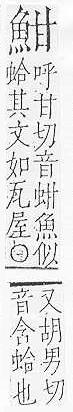 魽
呼甘切音蚶魚似
蛤其文如瓦屋○
又胡男切
音含蛤也